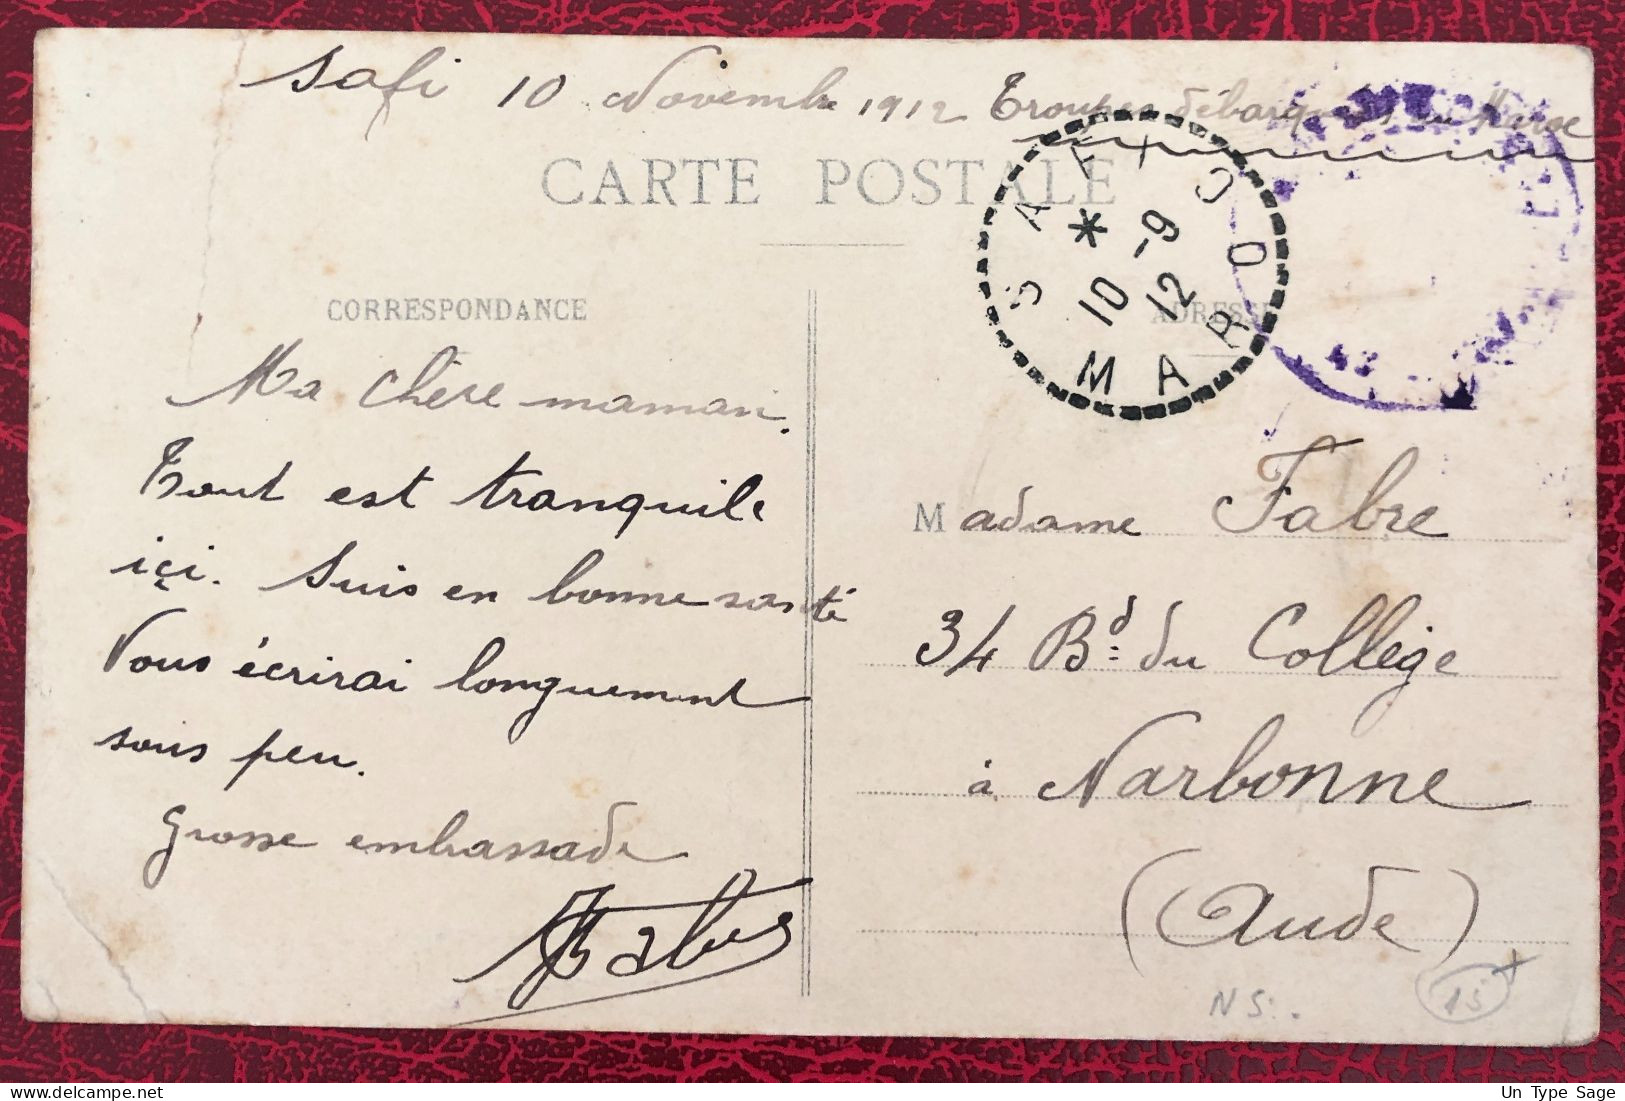 Safi 10 Novembre 1912 Troupes débarquées au Maroc
CARTE POSTALE
SAFI
*
10 -9
12
MAROC
CORRESPONDANCE
ADRESSE
Ma chère maman.
Tout est tranquile
içi. Suis en bonne santé
Vous écrirai longuement
sous peu.
Grosse embrassade
Fabre
Madame Fabre
34 Bd du Collège
à Narbonne
(Aude)
NS.
15
Un Type Sage